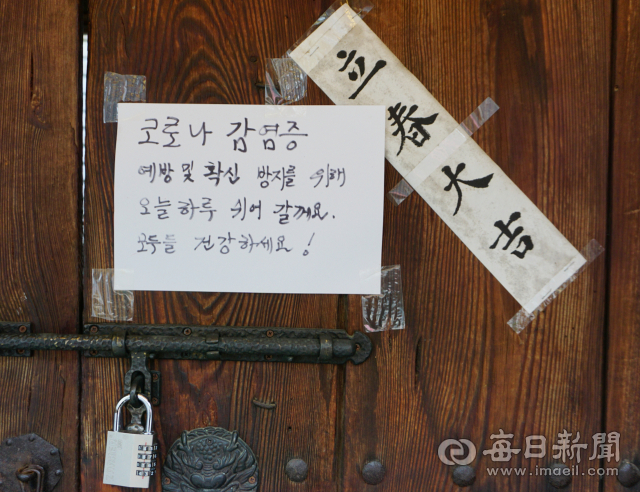 코로나 감염증
예방 및 확산 방지를 위해
오늘 하루 쉬어 갈께요.
모두들 건강하세요!
立春大吉
매일新聞
www.imaeil.com